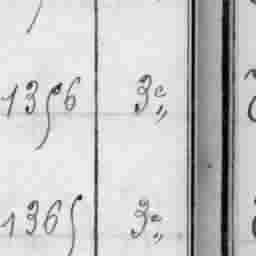 1356 3e„
1365 3e„